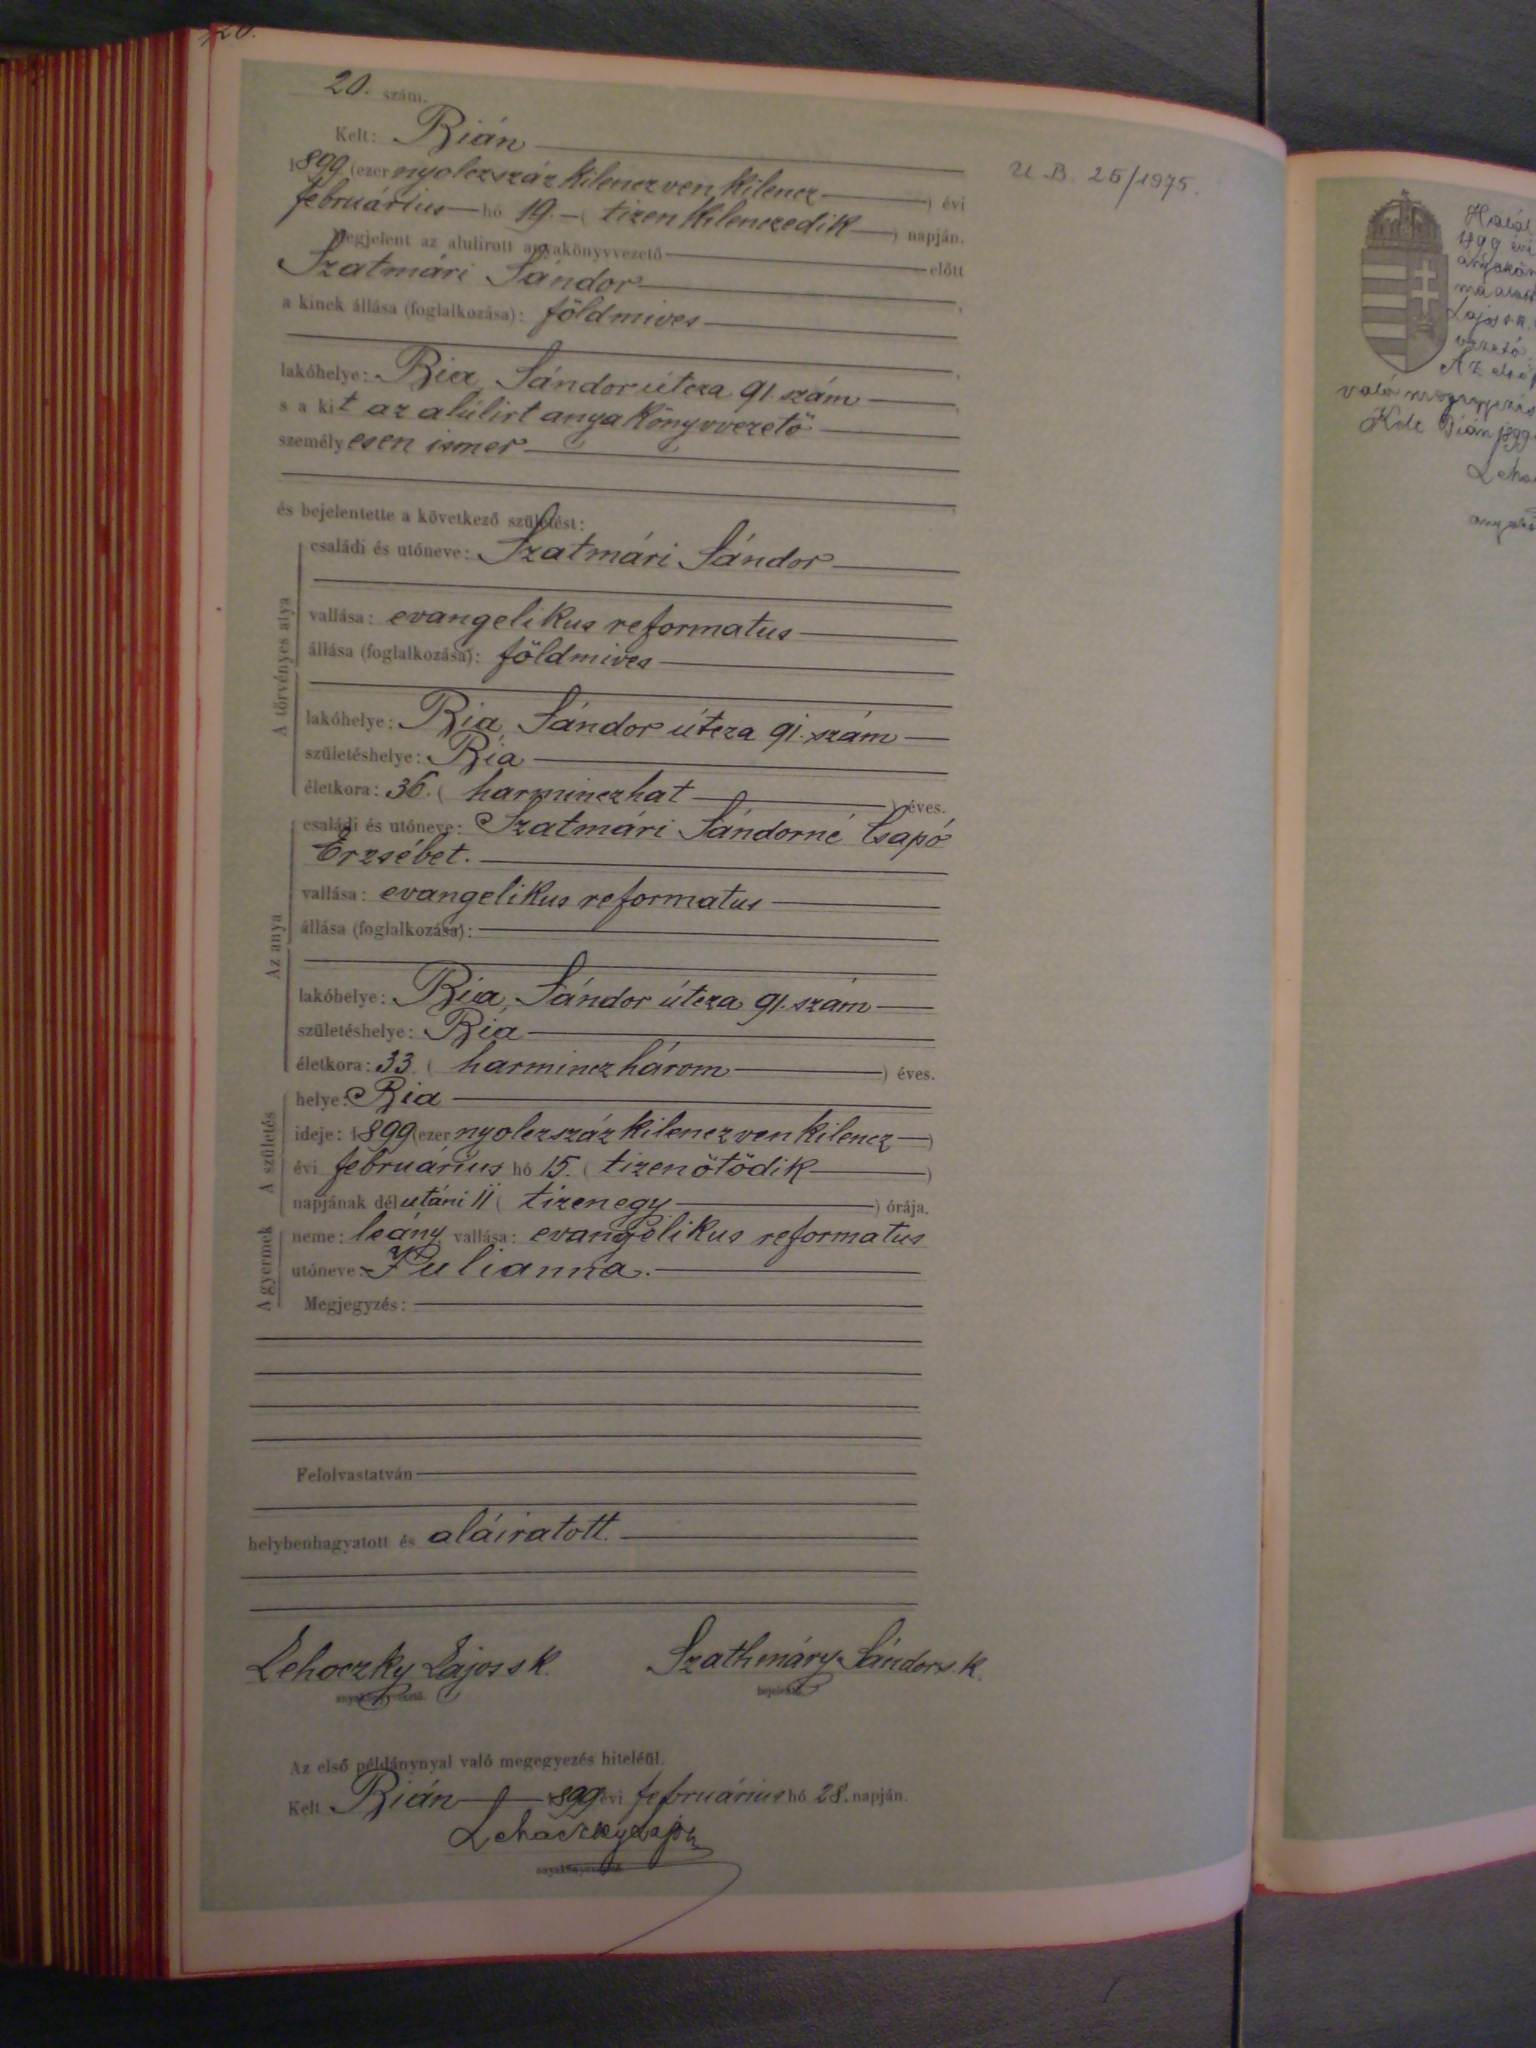 20.
20. szám.
Kelt: Bián
1899 (ezer nyolczszáz kilenczven kilencz ) évi
februárius hó 19. ( tizenkilenczedik ) napján.
Megjelent az alulirott anyakönyvvezető előtt
Szatmári Sándor
a kinek állása (foglalkozása): földmives
lakóhelye: Bia, Sándor útcza 91. szám
s a kit az alúlirt anyakönyvvezető
személyesen ismer
és bejelentette a következő születést:
A törvényes atya
családi és utóneve: Szatmári Sándor
vallása: evangelikus reformatus
állása (foglalkozása): földmives
lakóhelye: Bia, Sándor útcza 91. szám
születéshelye: Bia
életkora: 36. ( harminczhat ) éves.
Az anya
családi és utóneve: Szatmári Sándorné Csapó
Erzsébet.
vallása: evangelikus reformatus
állása (foglalkozása):
lakóhelye: Bia, Sándor útcza 91. szám
születéshelye: Bia
életkora: 33. ( harminczhárom ) éves.
A születés
helye: Bia
ideje: 1899 (ezer nyolczszáz kilenczven kilencz )
évi februárius hó 15. ( tizenötödik )
napjának délutáni 11 ( tizenegy ) órája.
A gyermek
neme: leány vallása: evangélikus reformatus
utóneve: Julianna.
Megjegyzés:
Felolvastatván
helybenhagyatott és aláiratott.
Lehoczky Lajos s k. Szathmáry Sándor s. k.
anyakönyvvezető. bejelentő.
Az első példánynyal való megegyezés hiteléül.
Kelt Bián 1899 évi februárius hó 28. napján.
Lehoczky Lajos
anyakönyvvezető.
U. B. 25/1975.
Halál
1899 évi
anyakön
ma alatt
Lajos s. k.
vezető
Az első p
való megegyezés
Kelt Bián 1899
Leho